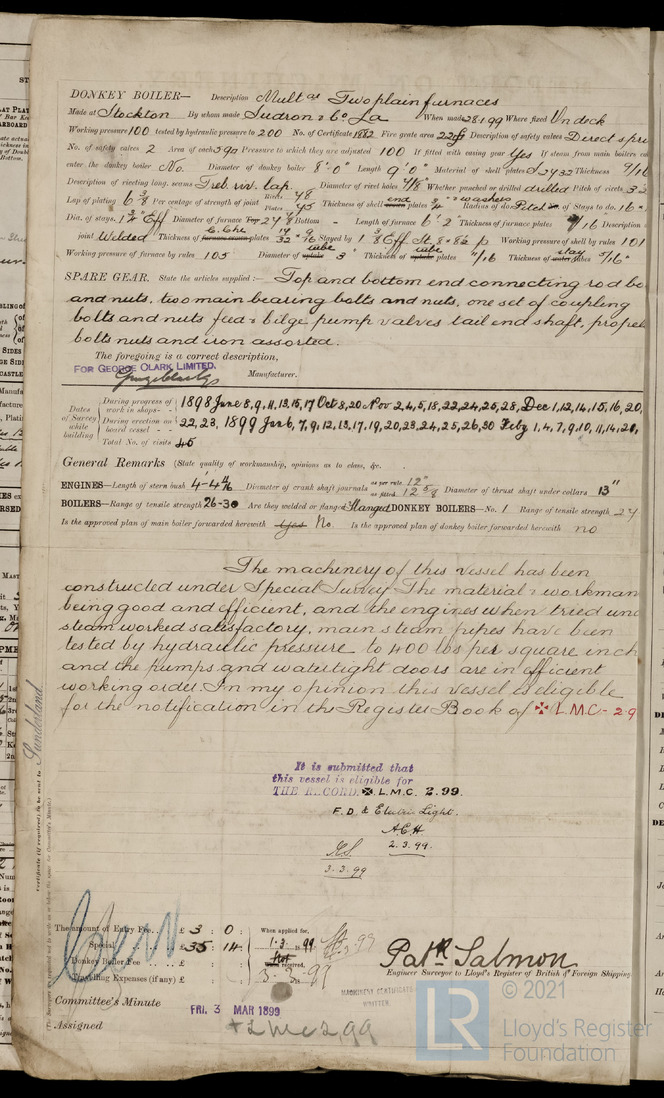 DONKEY BOILER— Description Multar Two plain furnaces
Made at Stockton By whom made Sudron & Co. La When made 28.1.99 Where fixed On deck
Working pressure 100 tested by hydraulic pressure to 200 No. of Certificate 1882 Fire grate area Description of safety valves Direct spri
No. of safety valves 2 Area of each Pressure to which they are adjusted 100 If fitted with easing gear Yes If steam from main boilers ca
enter the donkey boiler No. Diameter of donkey boiler 8'-0" Length 9'0" Material of shell plates Thickness 9/16
Description of riveting long. seams Treb. riv. lap. Diameter of rivet holes 7/8" Whether punched or drilled drilled Pitch of rivets
Lap of plating 6 3/8 Per centage of strength of joint Rivets 78 Plates Thickness of shell end plates washers Radius of do. Pitch of Stays to do. 16"
Dia. of stays. Diameter of furnace Top Bottom - Length of furnace 6' 2" Thickness of furnace plates 9/16 Description
joint Welded Thickness of furnace crown plates C. Chr Stayed by Working pressure of shell by rules 101
Working pressure of furnace by rules 105 Diameter of uptake tube 3" Thickness of uptake tube plates Thickness of water stay tubes 5/16"
SPARE GEAR. State the articles supplied:— Top and bottom end connecting rod bo
and nuts, two main bearing bolts and nuts, one set of coupling
bolts and nuts feed & bilge pump valves tail end shaft, propel
bolts nuts and iron assorted.
The foregoing is a correct description,
FOR GEORGE CLARK LIMITED.
Manufacturer.
Dates of Survey while building
During progress of work in shops - - 1898 June 8, 9, 11, 13, 15, 17 Oct 8, 20 Nov 2, 4, 5, 18, 22, 24, 25, 28, Dec 1, 12, 14, 15, 16, 20,
During erection on board vessel - - 22, 23, 1899 Jan 6, 7, 9, 12, 13, 17, 19, 20, 23, 24, 25, 26, 30 Feby 1, 4, 7, 9, 10, 11, 14, 20,
Total No. of visits 45
General Remarks (State quality of workmanship, opinions as to class, &c.
ENGINES—Length of stern bush Diameter of crank shaft journals as per rule 12" as fitted 12 5/8 Diameter of thrust shaft under collars 13"
BOILERS—Range of tensile strength 26-30 Are they welded or flanged Flanged DONKEY BOILERS—No. 1 Range of tensile strength 27
Is the approved plan of main boiler forwarded herewith Yes No. Is the approved plan of donkey boiler forwarded herewith no
The machinery of this vessel has been
constructed under Special Survey. The material & workman
being good and efficient, and the engines when tried und
steam worked satisfactory, main steam pipes have been
tested by hydraulic pressure to 400 lbs per square inch
and the pumps and watertight doors are in efficient
working order. In my opinion this vessel is eligible
for the notification in the Register Book of ✠ L.M.C - 2.9
It is submitted that
this vessel is eligible for
THE RECORD. ✠ L.M.C. 2.99.
F.D. & Electric Light.
A.C.H.
2.3.99.
3.3.99
Certificate (if required) to be sent to Sunderland
The amount of Entry Fee. . £ 3 : 0 : When applied for,
Special . . £ 35 : 14 : 1.3.1899
Donkey Boiler Fee . . £ : : When received,
Travelling Expenses (if any) £ : : 3.3.99
Patk. Salmon
Engineer Surveyor to Lloyd's Register of British & Foreign Shipping.
Committee's Minute
FRI. 3 MAR 1899
MACHINERY CERTIFICATE
WRITTEN.
Assigned + L.M.C 2.99
LR
© 2021
Lloyd's Register
Foundation